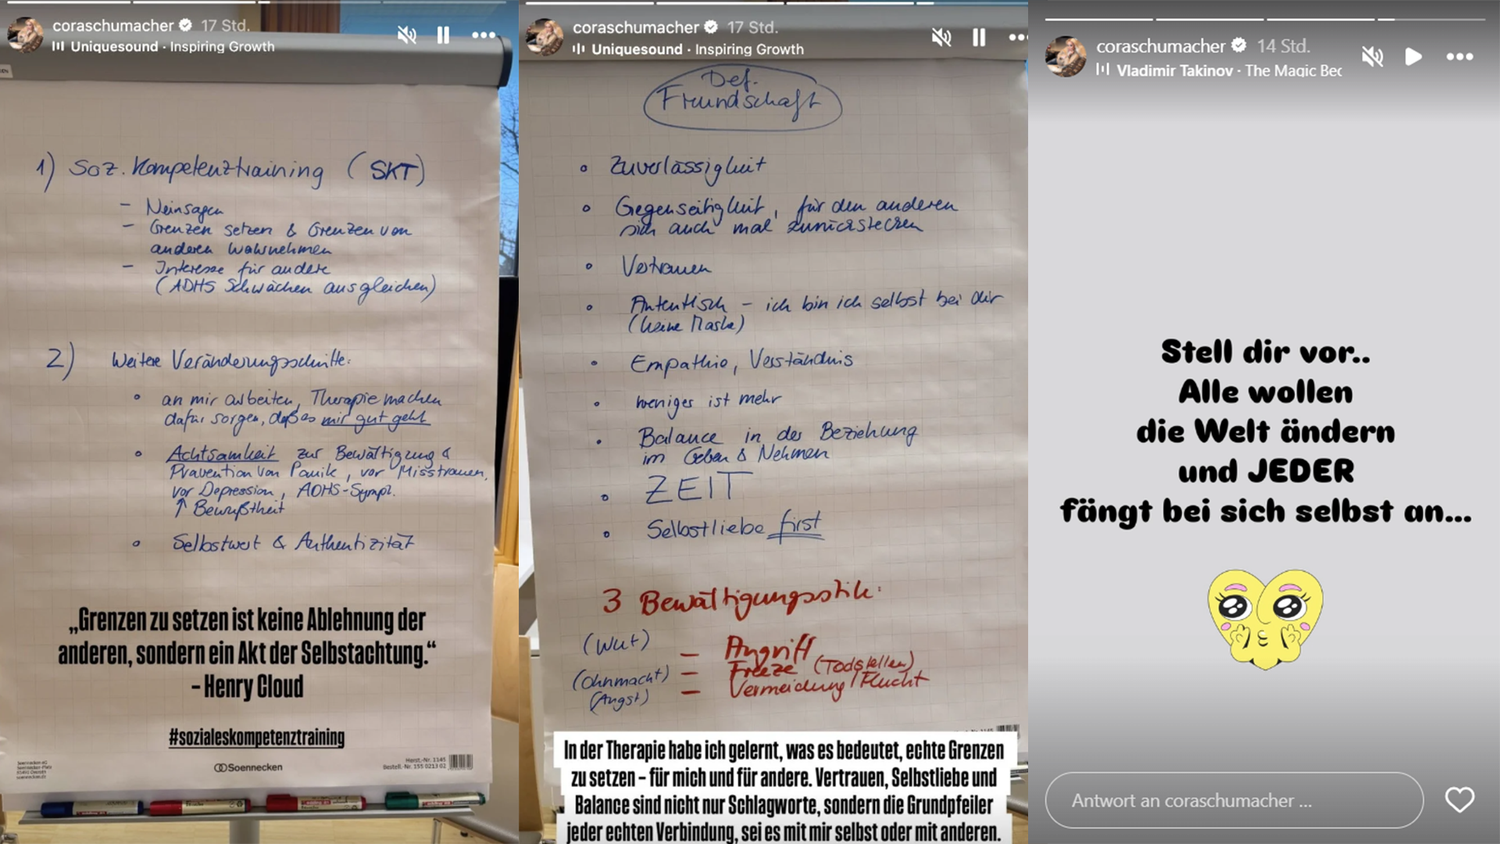 coraschumacher 17 Std.
Uniquesound · Inspiring Growth
1) Soz. Kompetenztraining (SKT)
– Neinsagen
– Grenzen setzen & Grenzen von
anderen wahrnehmen
– Interesse für andere
(ADHS Schwächen ausgleichen)
2) Weitere Veränderungsschritte:
• an mir arbeiten, Therapie machen
dafür sorgen, daß es mir gut geht
• Achtsamkeit zur Bewältigung &
Prävention von Panik, vor Misstrauen,
vor Depression, ADHS-Sympt.
↑ Bewußtheit
• Selbstwert & Authentizität
„Grenzen zu setzen ist keine Ablehnung der
anderen, sondern ein Akt der Selbstachtung.“
– Henry Cloud
#sozialeskompetenztraining
Soennecken
coraschumacher 17 Std.
Uniquesound · Inspiring Growth
Def.
Freundschaft
• Zuverlässigkeit
• Gegenseitigkeit, für den anderen
sich auch mal zurückstecken
• Vertrauen
• Autentisch – ich bin ich selbst bei dir
(keine Maske)
• Empathie, Verständnis
• weniger ist mehr
• Balance in der Beziehung
im Geben & Nehmen
• ZEIT
• Selbstliebe first
3 Bewältigungsstile:
(Wut) – Angriff
(Ohnmacht) – Freeze (Todstellen)
(Angst) – Vermeidung/Flucht
In der Therapie habe ich gelernt, was es bedeutet, echte Grenzen
zu setzen – für mich und für andere. Vertrauen, Selbstliebe und
Balance sind nicht nur Schlagworte, sondern die Grundpfeiler
jeder echten Verbindung, sei es mit mir selbst oder mit anderen.
coraschumacher 14 Std.
Vladimir Takinov · The Magic Bec
Stell dir vor..
Alle wollen
die Welt ändern
und JEDER
fängt bei sich selbst an...
Antwort an coraschumacher ...